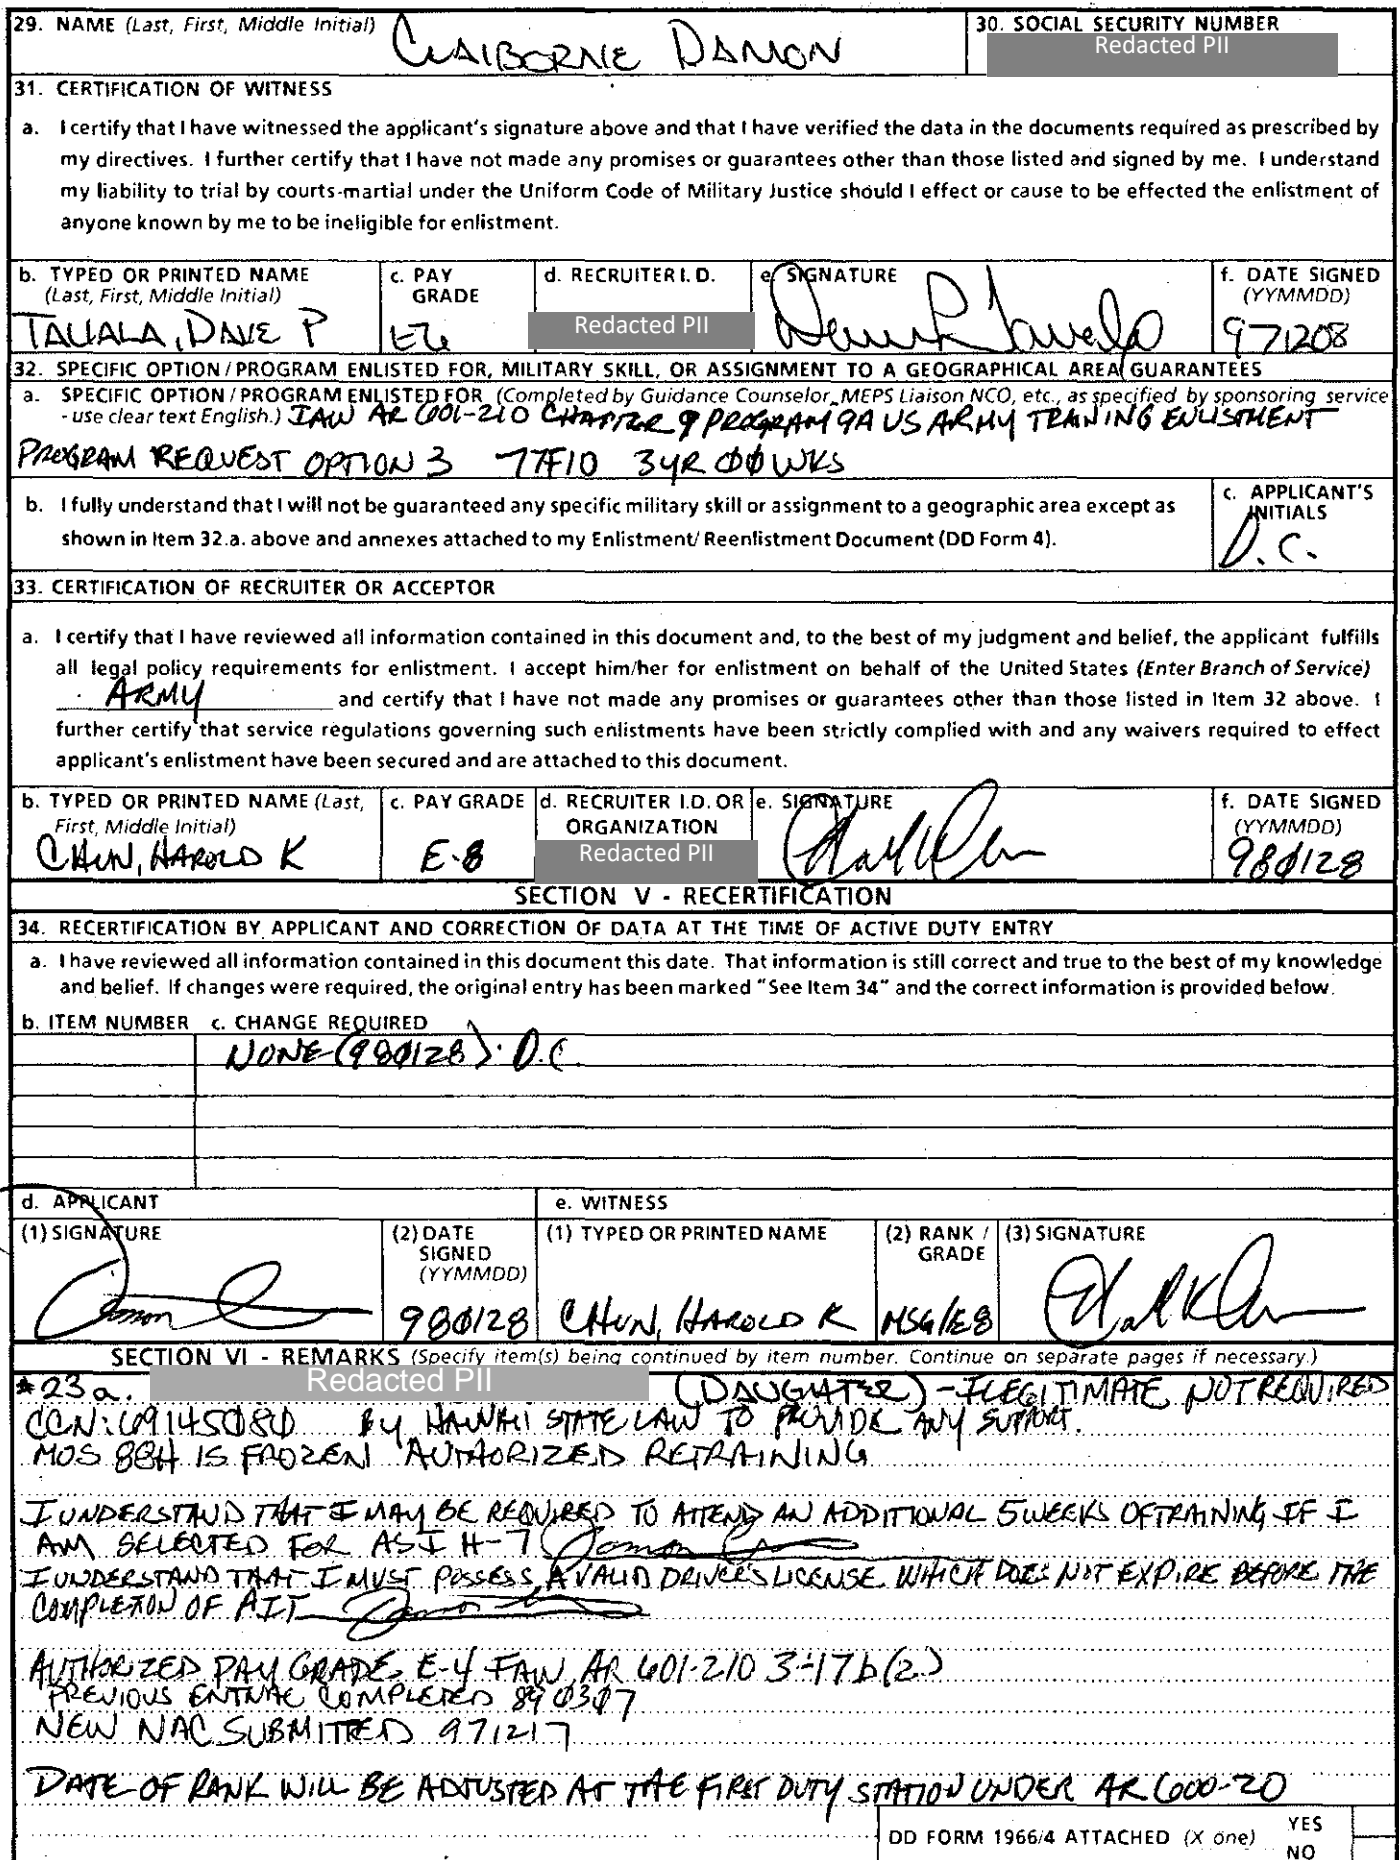 29. NAME (Last, First, Middle Initial)
CLAIBORNE DAMON
30. SOCIAL SECURITY NUMBER
Redacted PII
31. CERTIFICATION OF WITNESS
a. I certify that I have witnessed the applicant's signature above and that I have verified the data in the documents required as prescribed by
my directives. I further certify that I have not made any promises or guarantees other than those listed and signed by me. I understand
my liability to trial by courts-martial under the Uniform Code of Military Justice should I effect or cause to be effected the enlistment of
anyone known by me to be ineligible for enlistment.
b. TYPED OR PRINTED NAME
(Last, First, Middle Initial)
DAVE P
c. PAY
GRADE
E6
d. RECRUITER I. D.
Redacted PII
e. SIGNATURE
f. DATE SIGNED
(YYMMDD)
971208
32. SPECIFIC OPTION/PROGRAM ENLISTED FOR, MILITARY SKILL, OR ASSIGNMENT TO A GEOGRAPHICAL AREA GUARANTEES
a. SPECIFIC OPTION/PROGRAM ENLISTED FOR (Completed by Guidance Counselor, MEPS Liaison NCO, etc., as specified by sponsoring service
- use clear text English.) IAW AR 601-210 CHAPTER 9 PROGRAM 9A US ARMY TRAINING ENLISTMENT
PROGRAM REQUEST OPTION 3 77F10 3YR 00WKS
b. I fully understand that I will not be guaranteed any specific military skill or assignment to a geographic area except as
shown in Item 32.a. above and annexes attached to my Enlistment/Reenlistment Document (DD Form 4).
c. APPLICANT'S
INITIALS
D.C.
33. CERTIFICATION OF RECRUITER OR ACCEPTOR
a. I certify that I have reviewed all information contained in this document and, to the best of my judgment and belief, the applicant fulfills
all legal policy requirements for enlistment. I accept him/her for enlistment on behalf of the United States (Enter Branch of Service)
ARMY and certify that I have not made any promises or guarantees other than those listed in Item 32 above. I
further certify that service regulations governing such enlistments have been strictly complied with and any waivers required to effect
applicant's enlistment have been secured and are attached to this document.
b. TYPED OR PRINTED NAME (Last,
First, Middle Initial)
CHUN, HAROLD K
c. PAY GRADE
E-8
d. RECRUITER I.D. OR
ORGANIZATION
Redacted PII
e. SIGNATURE
f. DATE SIGNED
(YYMMDD)
980128
SECTION V - RECERTIFICATION
34. RECERTIFICATION BY APPLICANT AND CORRECTION OF DATA AT THE TIME OF ACTIVE DUTY ENTRY
a. I have reviewed all information contained in this document this date. That information is still correct and true to the best of my knowledge
and belief. If changes were required, the original entry has been marked "See Item 34" and the correct information is provided below.
b. ITEM NUMBER c. CHANGE REQUIRED
NONE (980128). D.C.
d. APPLICANT
e. WITNESS
(1) SIGNATURE
(2) DATE
SIGNED
(YYMMDD)
980128
(1) TYPED OR PRINTED NAME
CHUN, HAROLD K
(2) RANK /
GRADE
MSG/E8
(3) SIGNATURE
SECTION VI - REMARKS (Specify item(s) being continued by item number. Continue on separate pages if necessary.)
*23a. Redacted PII (DAUGHTER) - ILEGITIMATE NOT REQUIRED
CCN: 69145080 BY HAWAII STATE LAW TO PROVIDE ANY SUPPORT.
MOS 88H IS FROZEN AUTHORIZED RETRAINING
I UNDERSTAND THAT I MAY BE REQUIRED TO ATTEND AN ADDITIONAL 5 WEEKS OF TRAINING IF I
AM SELECTED FOR ASI H-7
I UNDERSTAND THAT I MUST POSSESS A VALID DRIVER'S LICENSE WHICH DOES NOT EXPIRE BEFORE THE
COMPLETION OF AIT
AUTHORIZED PAY GRADE E-4 IAW AR 601-210 3-17b(2)
PREVIOUS ENTNAC COMPLETED 890307
NEW NAC SUBMITTED 971217
DATE OF RANK WILL BE ADJUSTED AT THE FIRST DUTY STATION UNDER AR 600-20
DD FORM 1966/4 ATTACHED (X one)
YES
NO